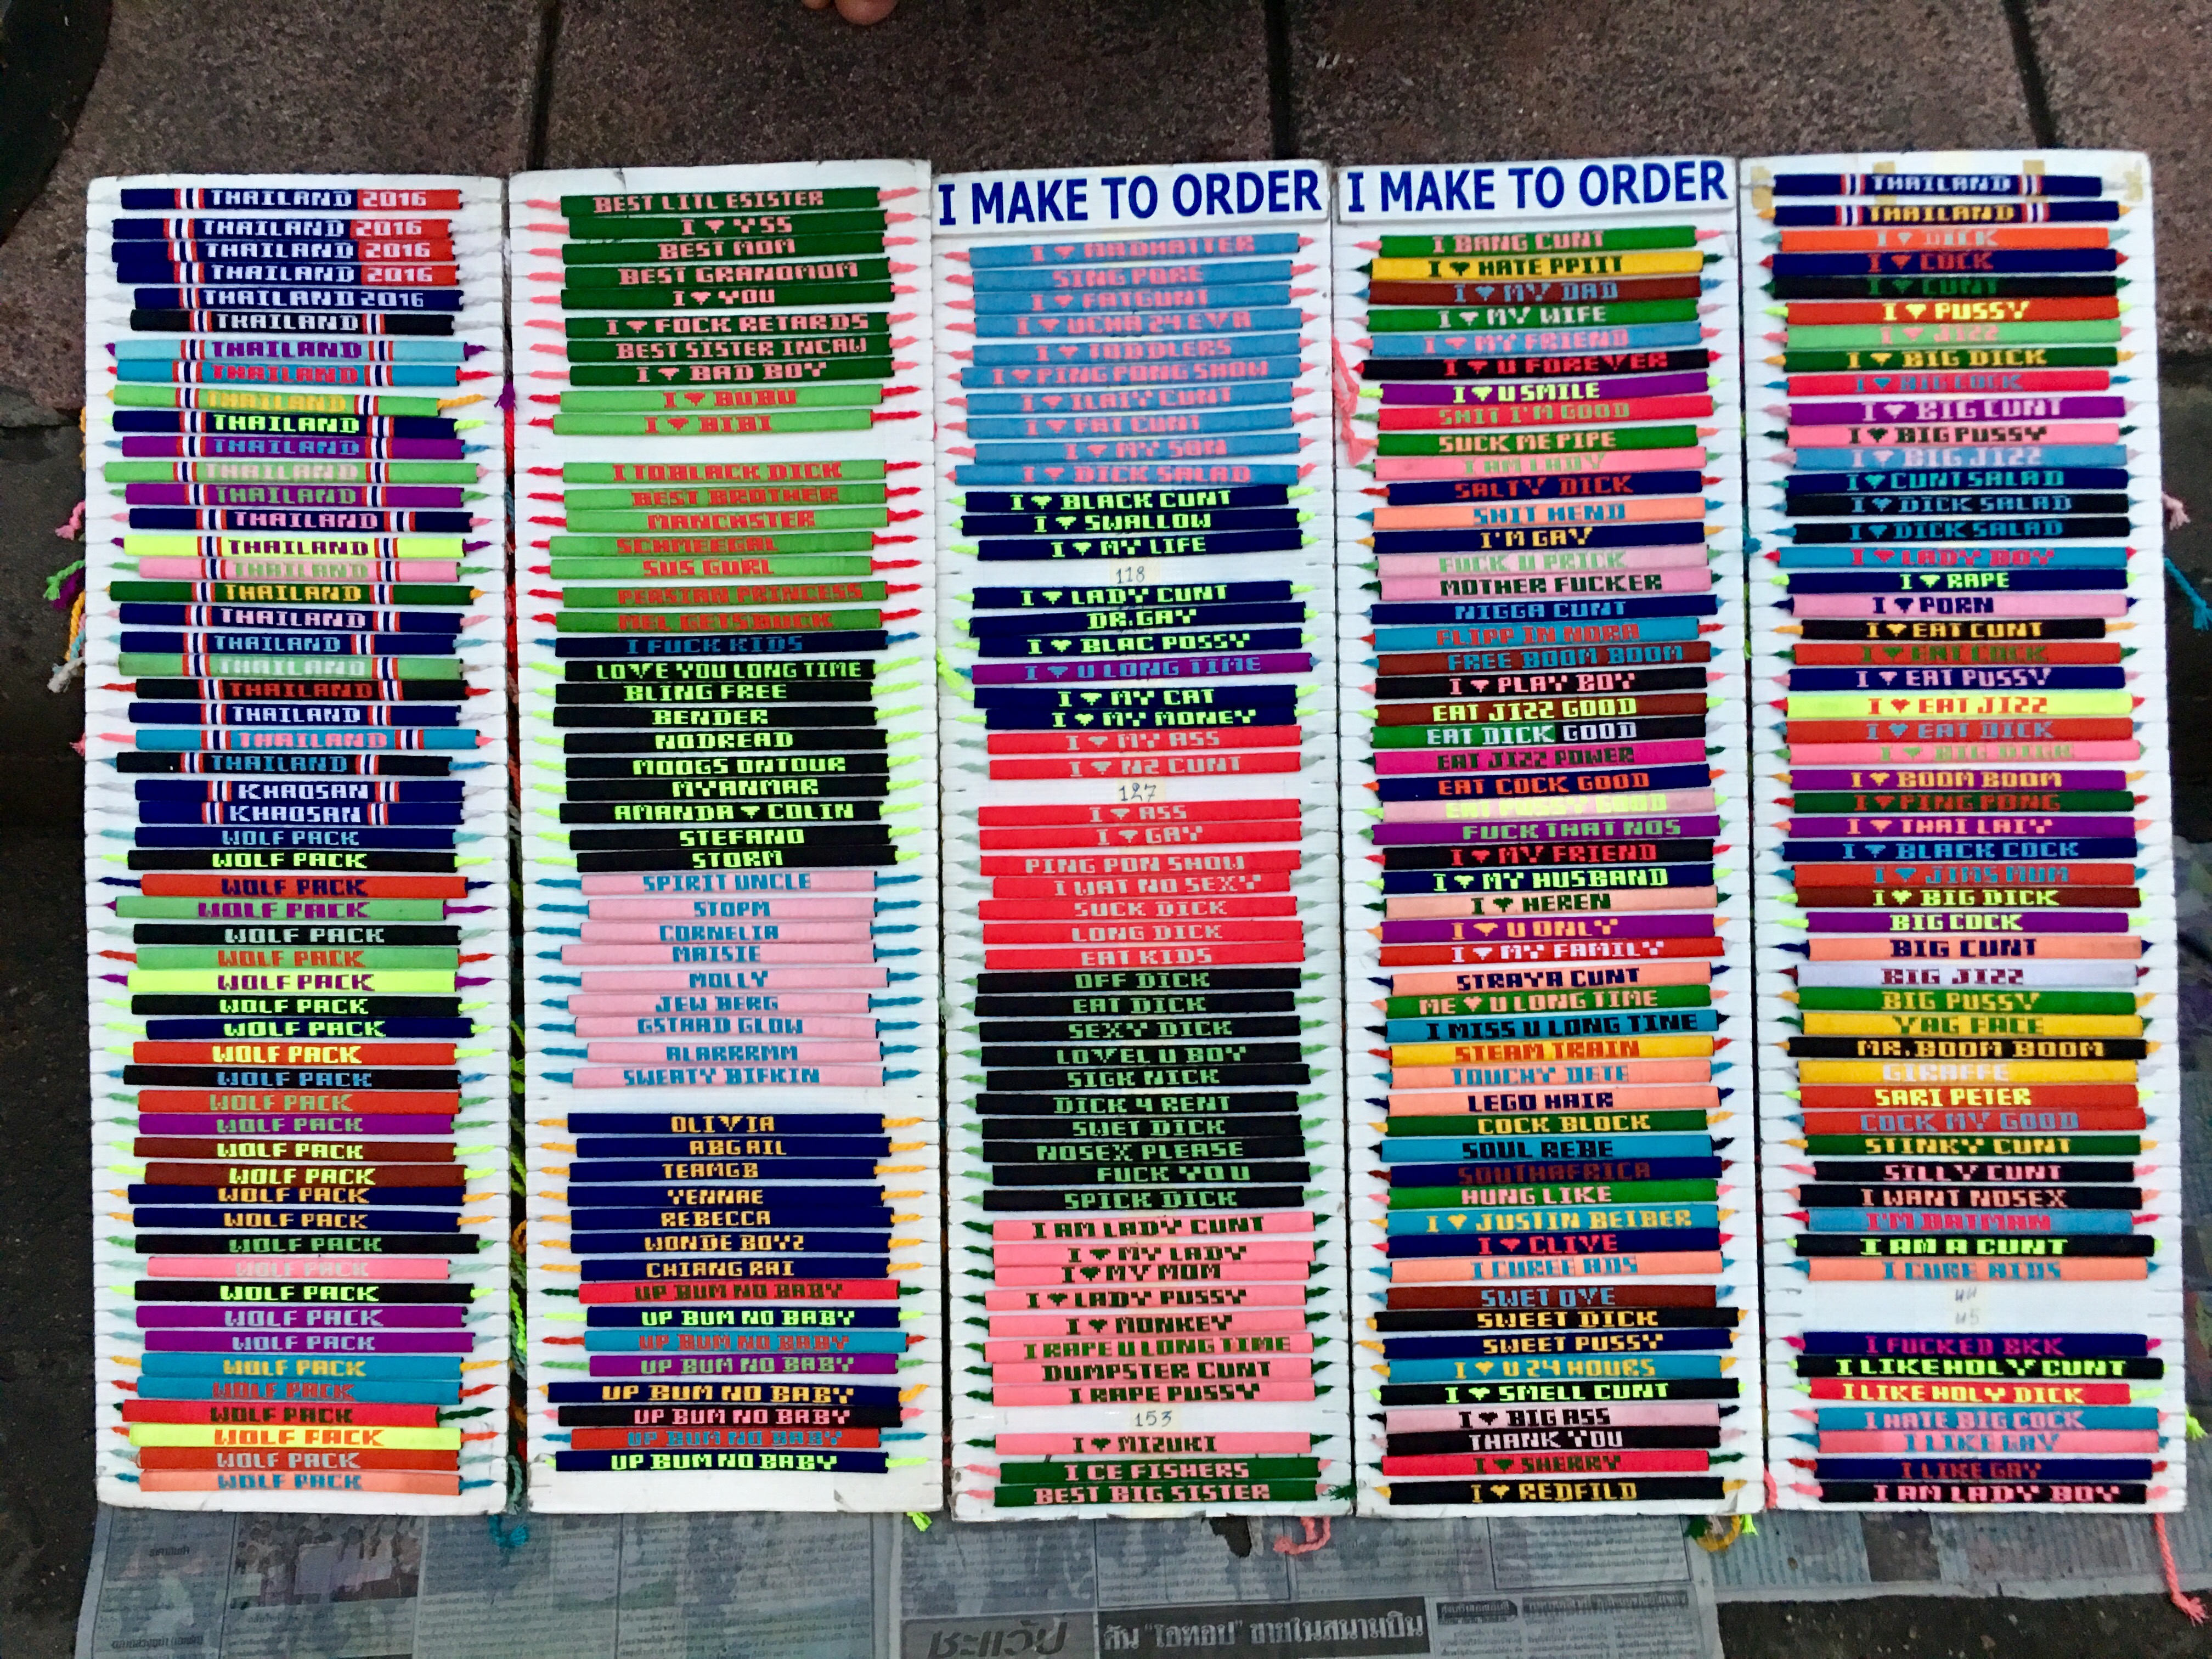 THAILAND 2016
THAILAND 2016
THAILAND 2016
THAILAND 2016
THAILAND 2016
THAILAND
THAILAND
THAILAND
THAILAND
THAILAND
THAILAND
THAILAND
THAILAND
THAILAND
THAILAND
THAILAND
THAILAND
THAILAND
THAILAND
THAILAND
THAILAND
THAILAND
THAILAND
THAILAND
KHAOSAN
KHAOSAN
WOLF PACK
WOLF PACK
WOLF PACK
WOLF PACK
WOLF PACK
WOLF PACK
WOLF PACK
WOLF PACK
WOLF PACK
WOLF PACK
WOLF PACK
WOLF PACK
WOLF PACK
WOLF PACK
WOLF PACK
WOLF PACK
WOLF PACK
WOLF PACK
WOLF PACK
WOLF PACK
WOLF PACK
WOLF PACK
WOLF PACK
WOLF PACK
WOLF PACK
WOLF PACK
WOLF PACK
WOLF PACK
BEST LITL ESISTER
I ♥ YSS
BEST MOM
BEST GRANDMOM
I ♥ YOU
I ♥ FOCK RETARDS
BEST SISTER INCAW
I ♥ BAD BOY
I ♥ BUBU
I ♥ BIBI
I TOBLACK DICK
BEST BROTHER
MANCHSTER
SCHMEEGAL
SUS GURL
PERSIAN PRINCESS
MEL GETS BUCK
I FUCK KIDS
LOVE YOU LONG TIME
BLING FREE
BENDER
NODREAD
MOOGS ONTOUR
MYANMAR
AMANDA ♥ COLIN
STEFANO
STORM
SPIRIT UNCLE
STOPM
CORNELIA
MAISIE
MOLLY
JEW BERG
GSTAAD GLOW
ALARRRMM
SWEATY BIFKIN
OLIVIA
ABGAIL
TEAMGB
YENNAE
REBECCA
WONDE BOYZ
CHIANG RAI
UP BUM NO BABY
UP BUM NO BABY
UP BUM NO BABY
UP BUM NO BABY
UP BUM NO BABY
UP BUM NO BABY
UP BUM NO BABY
UP BUM NO BABY
I MAKE TO ORDER
I ♥ MADHATTER
SING PORE
I ♥ FATGUNT
I ♥ UCHA 24 EVA
I ♥ TODDLERS
I ♥ PING PONG SHOW
I ♥ ILAIY CUNT
I ♥ FAT CUNT
I ♥ MY SON
I ♥ DICK SALAD
I ♥ BLACK CUNT
I ♥ SWALLOW
I ♥ MY LIFE
118
I ♥ LADY CUNT
DR.GAY
I ♥ BLAC POSSY
I ♥ U LONG TIME
I ♥ MY CAT
I ♥ MY MONEY
I ♥ MY ASS
I ♥ NZ CUNT
127
I ♥ ASS
I ♥ GAY
PING PON SHOW
I WAT NO SEXY
SUCK DICK
LONG DICK
EAT KIDS
OFF DICK
EAT DICK
SEXY DICK
LOVEL U BOY
SIGK NICK
DICK 4 RENT
SWET DICK
NOSEX PLEASE
FUCK YOU
SPICK DICK
I AM LADY CUNT
I ♥ MY LADY
I ♥ MY MOM
I ♥ LADY PUSSY
I ♥ MONKEY
I RAPE U LONG TIME
DUMPSTER CUNT
I RAPE PUSSY
153
I ♥ MIZUKI
I CE FISHERS
BEST BIG SISTER
I MAKE TO ORDER
I BANG CUNT
I ♥ HATE PPIIT
I ♥ MY DAD
I ♥ MY WIFE
I ♥ MY FRIEND
I ♥ U FOREVER
I ♥ U SMILE
SHIT I'M GOOD
SUCK ME PIPE
I AM LADY
SALTY DICK
SHIT HEND
I'M GAY
FUCK U PRICK
MOTHER FUCKER
NIGGA CUNT
FLIPP IN NORA
FREE BOOM BOOM
I ♥ PLAY BOY
EAT JIZZ GOOD
EAT DICK GOOD
EAT JIZZ POWER
EAT COCK GOOD
EAT PUSSY GOOD
FUCK THAT NOS
I ♥ MY FRIEND
I ♥ MY HUSBAND
I ♥ HEREN
I ♥ U ONLY
I ♥ MY FAMILY
STRAYA CUNT
ME ♥ U LONG TIME
I MISS U LONG TINE
STEAM TRAIN
TOUCHY DETE
LEGO HAIR
COCK BLOCK
SOUL REBE
SOUTHAFRICA
HUNG LIKE
I ♥ JUSTIN BEIBER
I ♥ CLIVE
I CUREE ADS
SWET OYE
SWEET DICK
SWEET PUSSY
I ♥ U 24 HOURS
I ♥ SMELL CUNT
I ♥ BIG ASS
THANK YOU
I ♥ SHERRY
I ♥ REDFILD
THAILAND
THAILAND
I ♥ DICK
I ♥ COCK
I ♥ CUNT
I ♥ PUSSY
I ♥ JIZZ
I ♥ BIG DICK
I ♥ BIG COCK
I ♥ BIG CUNT
I ♥ BIG PUSSY
I ♥ BIG JIZZ
I ♥ CUNT SALAD
I ♥ DICK SALAD
I ♥ DICK SALAD
I ♥ LADY BOY
I ♥ RAPE
I ♥ PORN
I ♥ EAT CUNT
I ♥ EAT COCK
I ♥ EAT PUSSY
I ♥ EAT JIZZ
I ♥ EAT DICK
I ♥ BIG DICK
I ♥ BOOM BOOM
I ♥ PING PONG
I ♥ THAI LAIY
I ♥ BLACK COCK
I ♥ JIMS MUM
I ♥ BIG DICK
BIG COCK
BIG CUNT
BIG JIZZ
BIG PUSSY
VAG FACE
MR.BOOM BOOM
GIRAFFE
SARI PETER
COCK MY GOOD
STINKY CUNT
SILLY CUNT
I WANT NOSEX
I'M BATMAN
I AM A CUNT
I CURE AIDS
44
45
I FUCKED BKK
I LIKE HOLY CUNT
I LIKE HOLY DICK
I HATE BIG COCK
I LIKE GAY
I LIKE GAY
I AM LADY BOY
ชะแว้ป
ดัน "โอทอป" ขายในสนามบิน